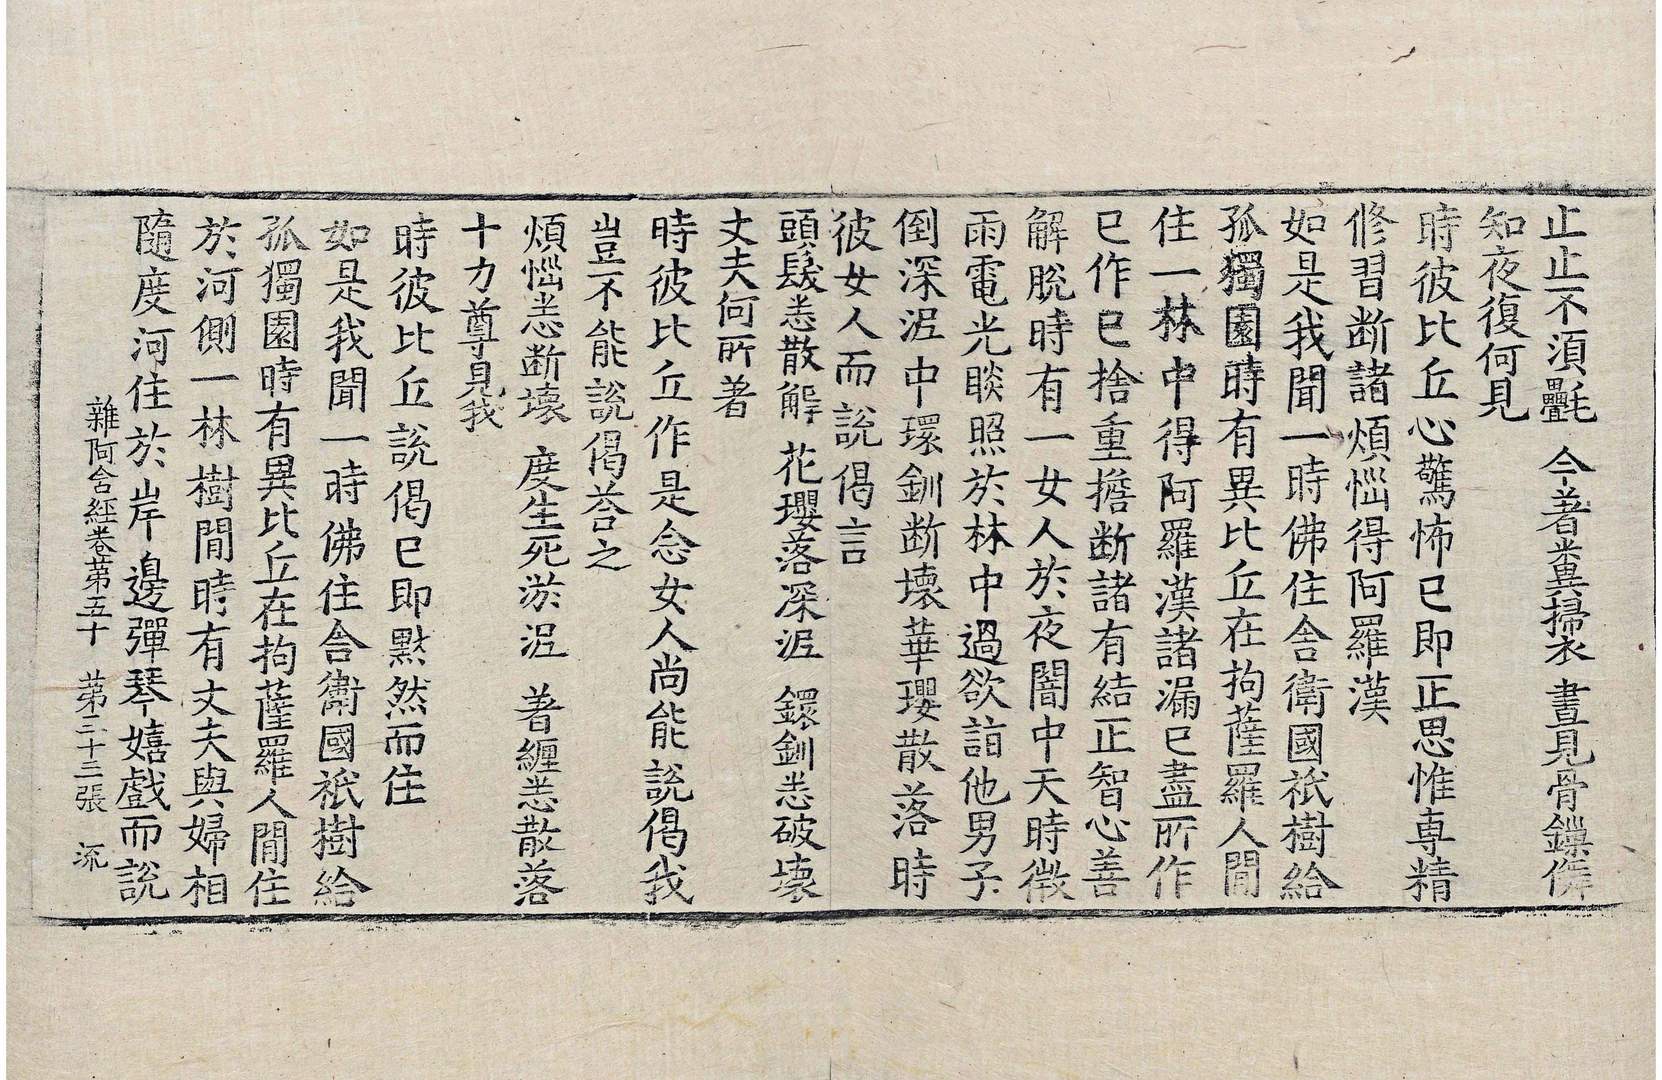 止止不須㲲　今著糞掃衣　晝見骨鏁儛
知夜復何見
時彼比丘心驚怖已即正思惟専精
修習断諸煩惱得阿羅漢
如是我聞一時佛住舎衛國祇樹給
孤獨園時有異比丘在拘薩羅人間
住一林中得阿羅漢諸漏已盡所作
已作已捨重擔断諸有結正智心善
解脫時有一女人於夜闇中天時微
雨電光睒照於林中過欲詣他男子
倒深泥中環釧断壞華瓔散落時
彼女人而說偈言
頭髮悉散解　花瓔落深泥　鐶釧悉破壞
丈夫何所著
時彼比丘作是念女人尚能說偈我
豈不能說偈荅之
煩惱悉断壞　度生死淤泥　著纏悉散落
十力尊見我
時彼比丘說偈已即默然而住
如是我聞一時佛住舎衛國祇樹給
孤獨園時有異比丘在拘薩羅人間住
於河側一林樹間時有丈夫與婦相
隨度河住於岸邊彈琴嬉戲而說
雜阿含經卷第五十　第三十三張　流